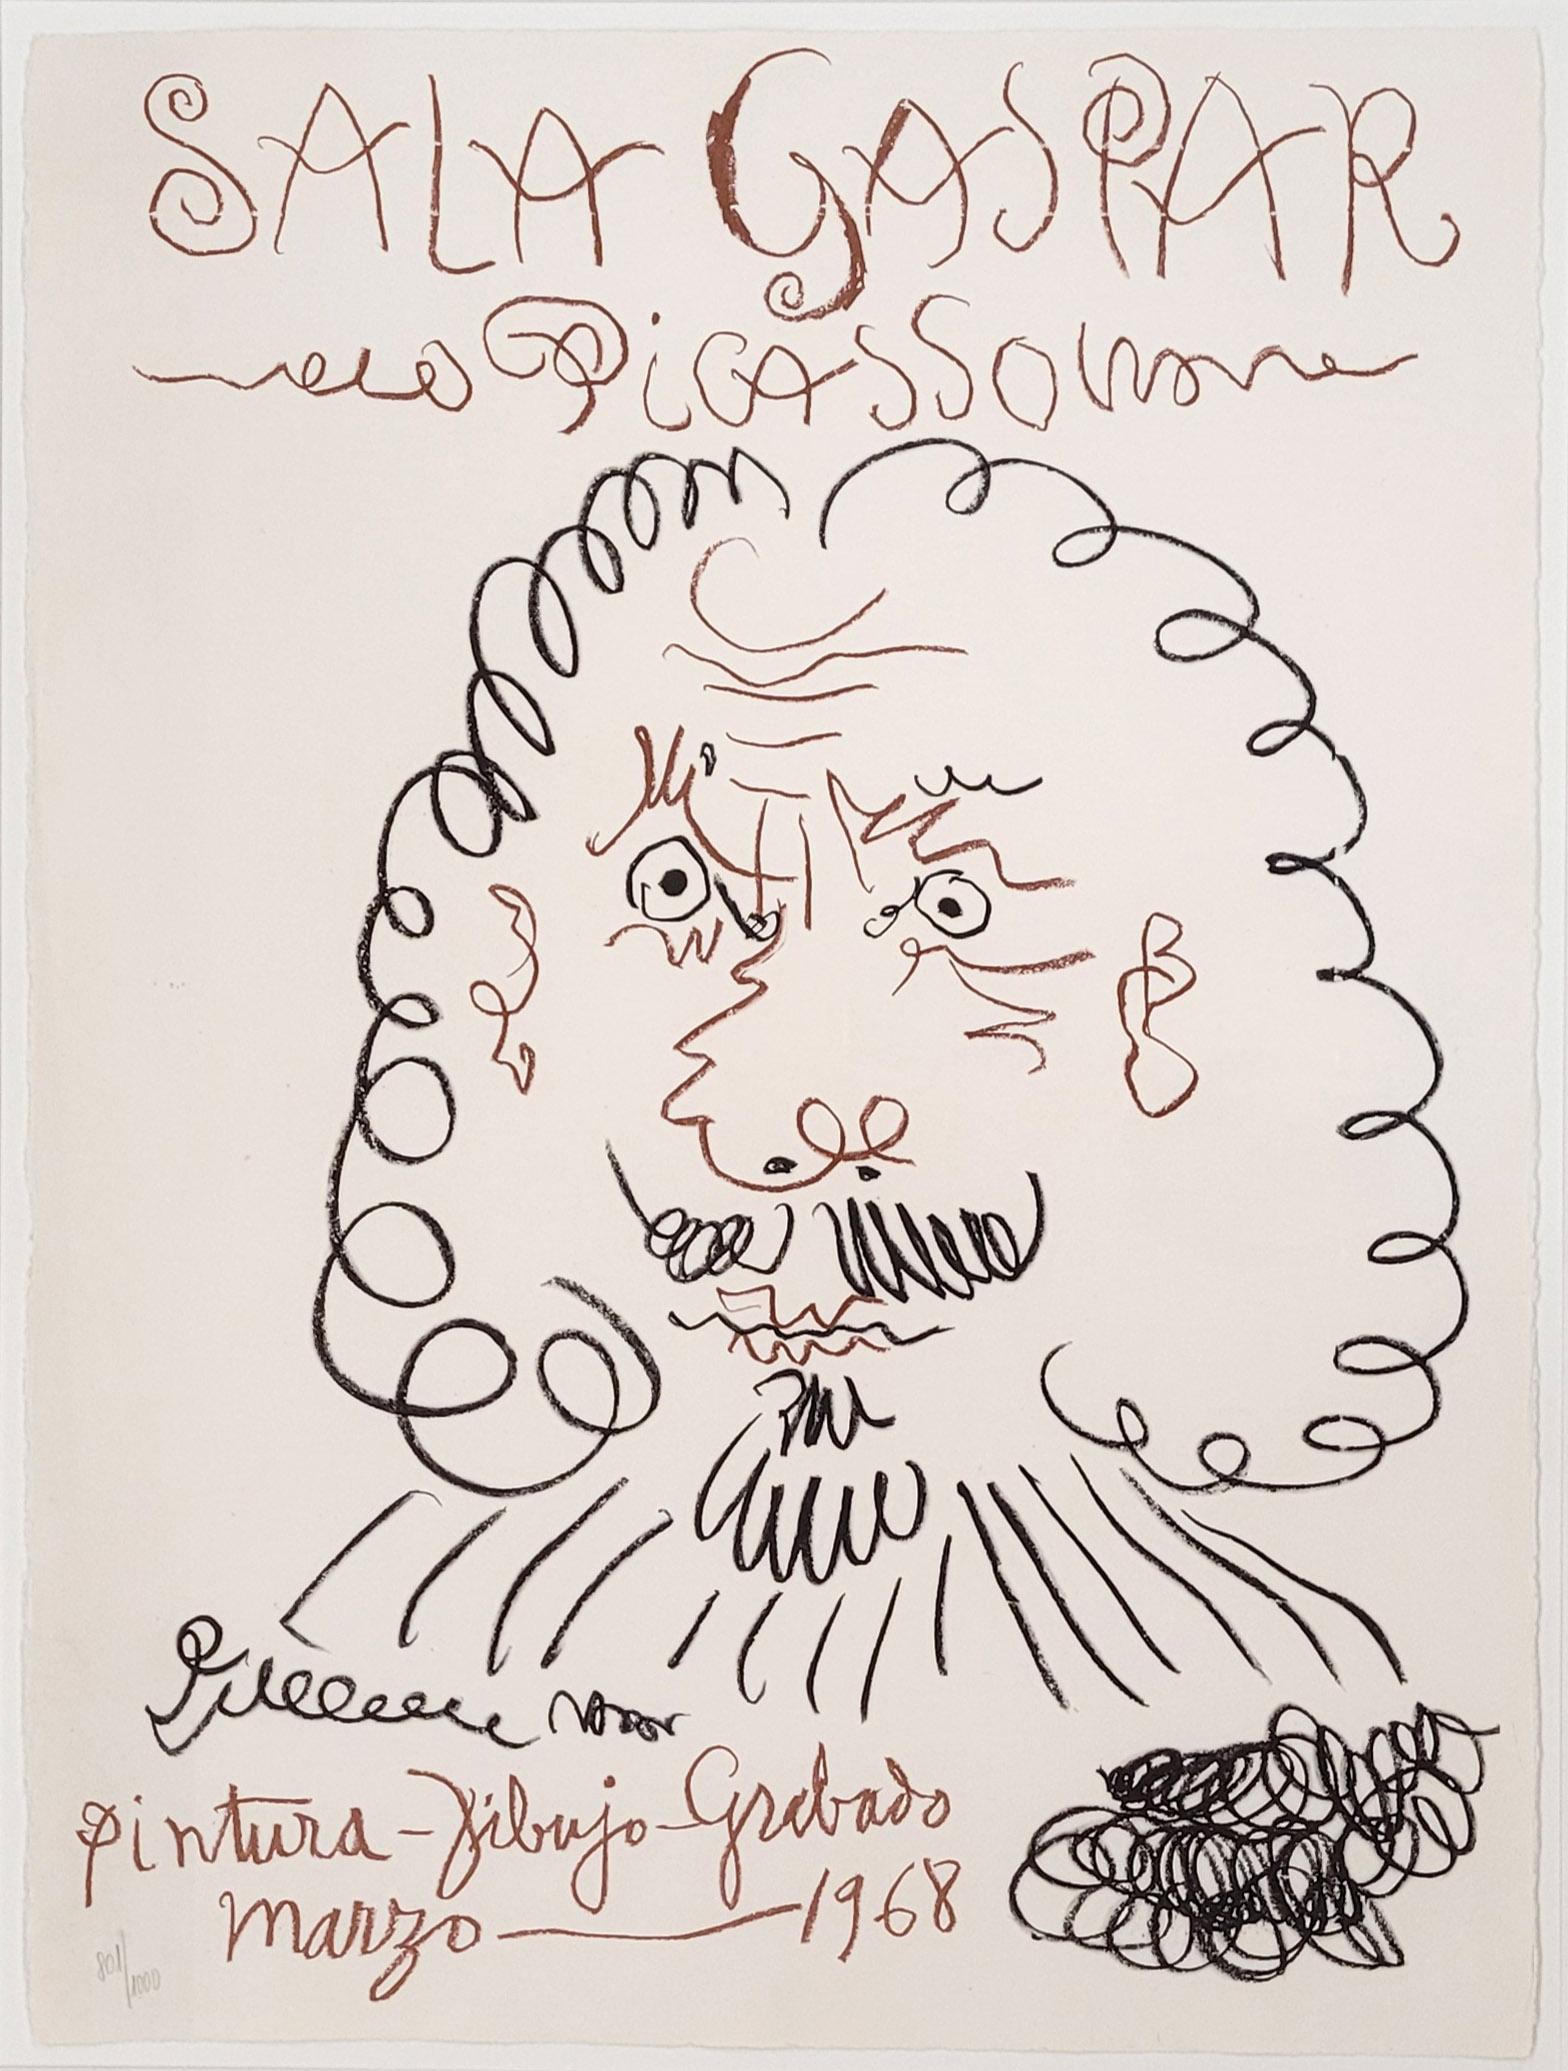 SALA GASPAR
Picasso
pintura-Dibujo-Grabado
marzo—1968
801/1000